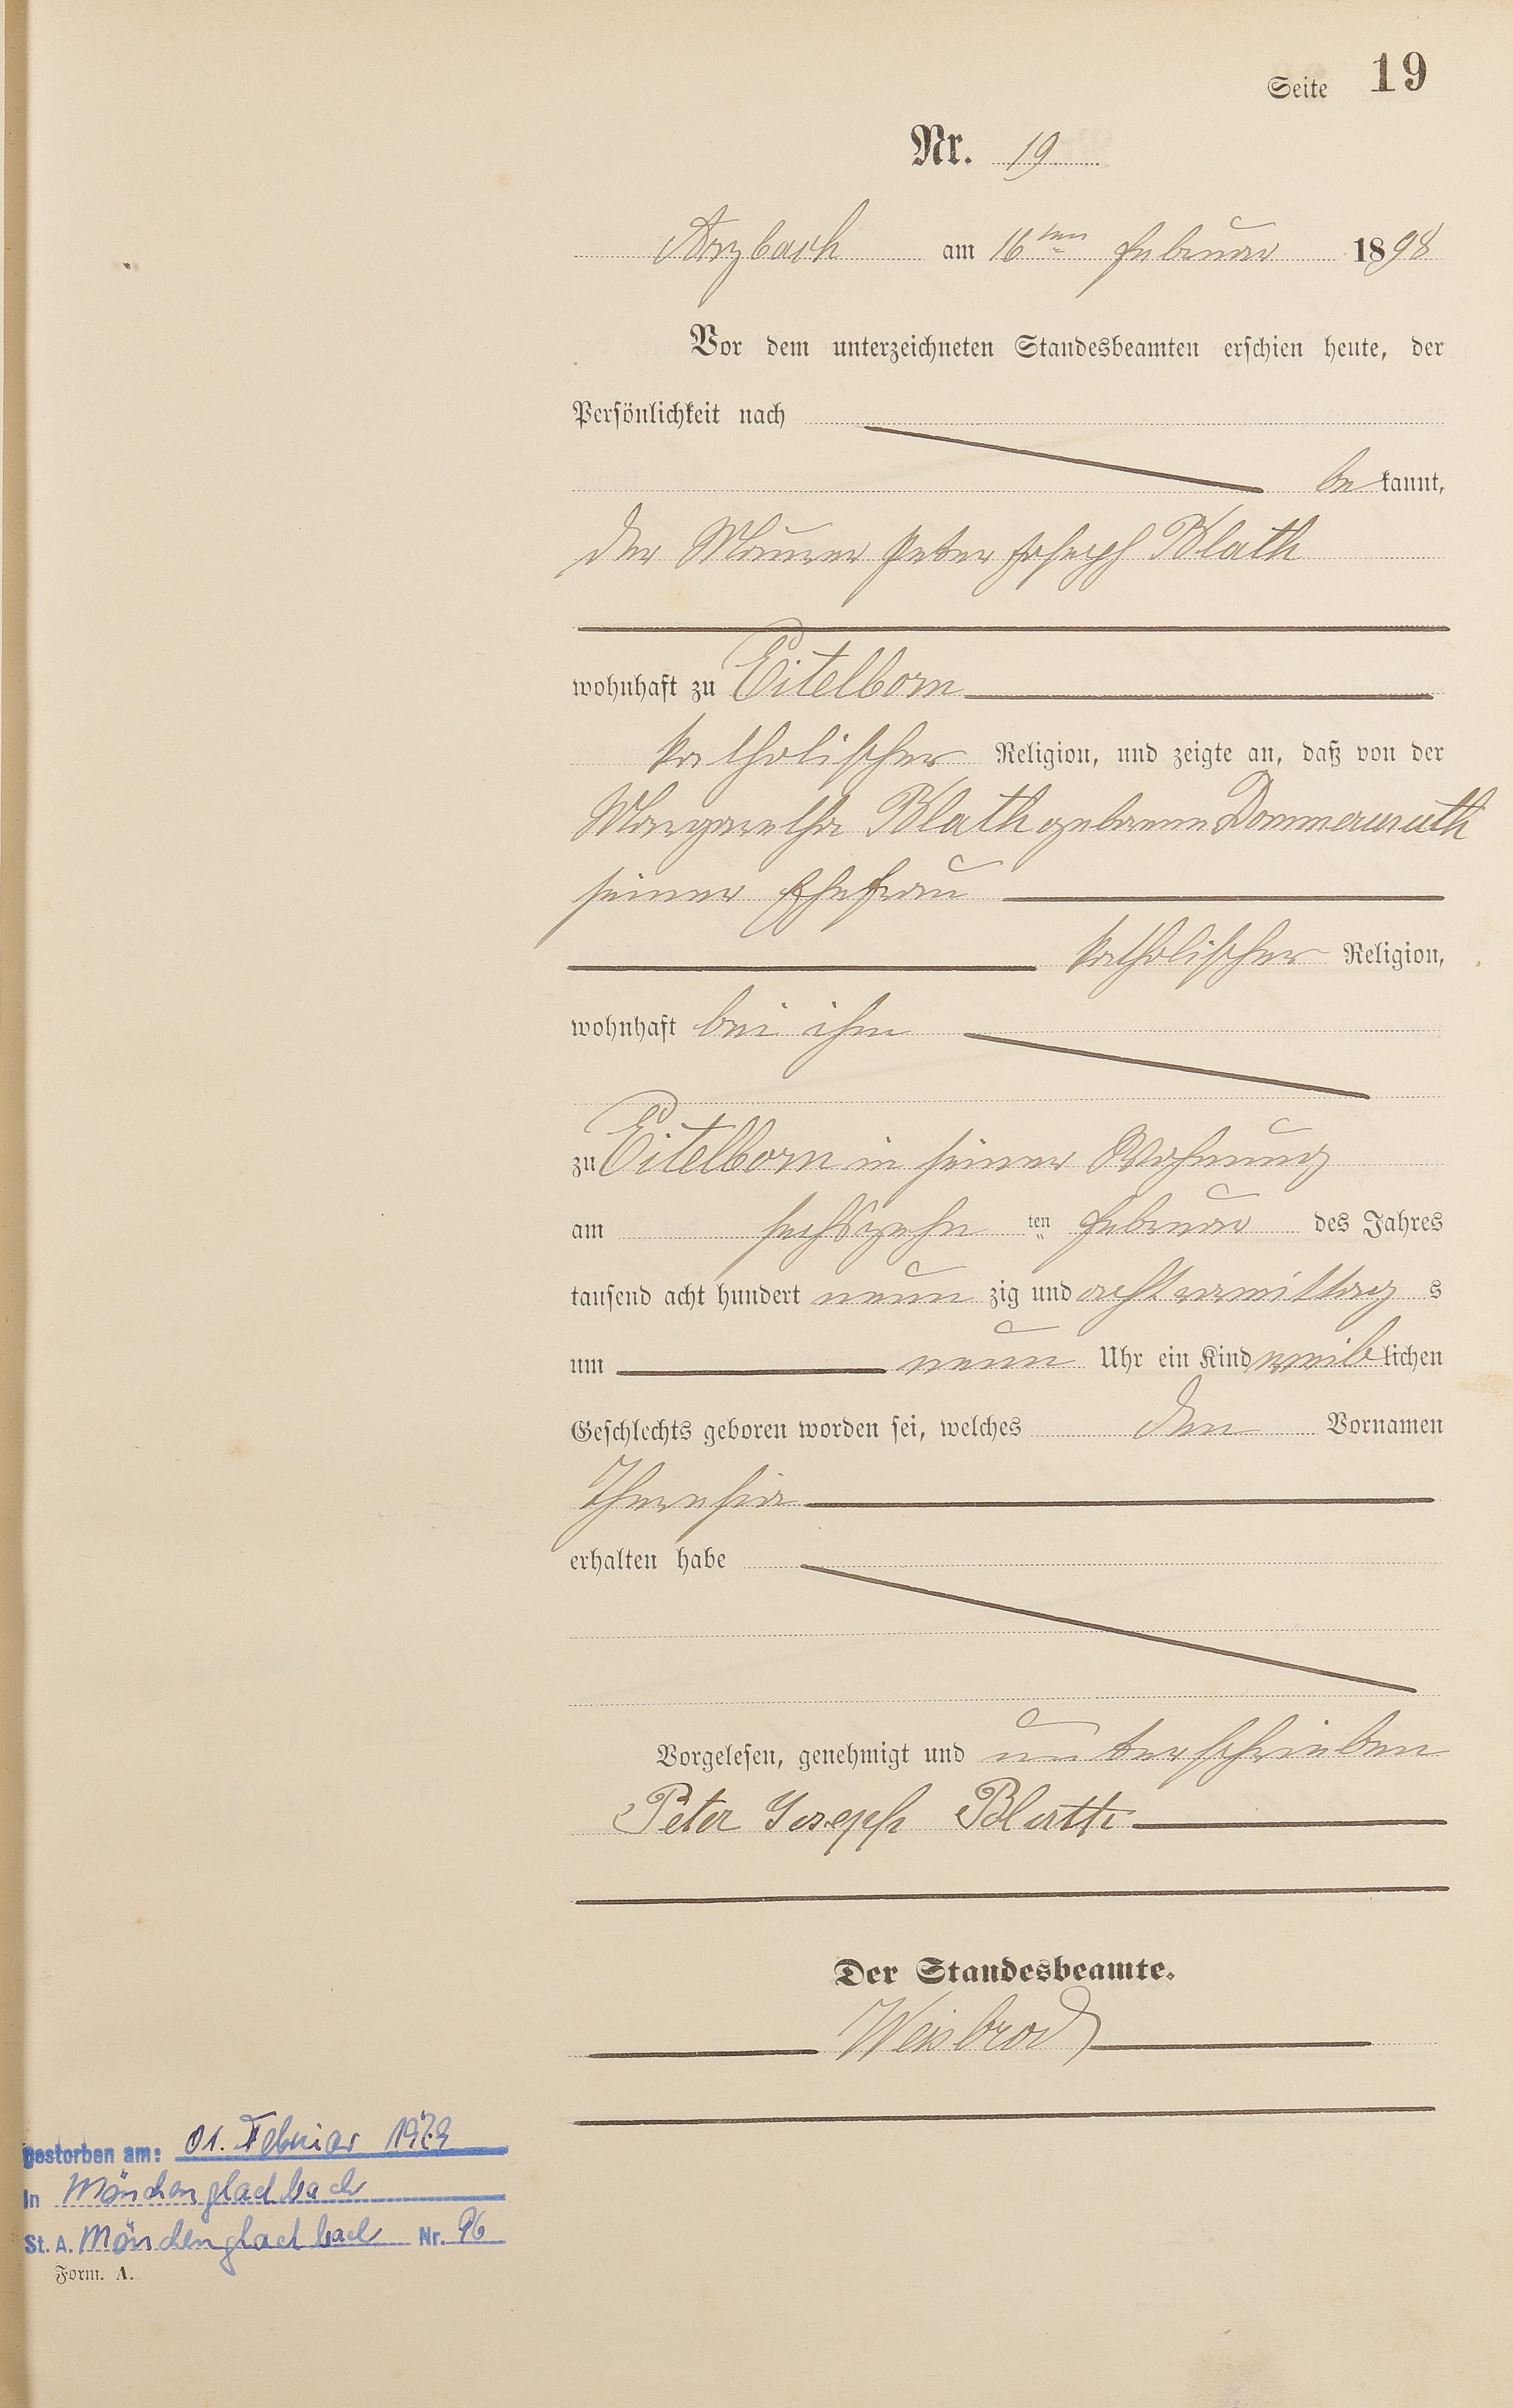 Seite 19
Nr. 19
Arzbach am 16ten Februar 1898
Vor dem unterzeichneten Standesbeamten erschien heute, der
Persönlichkeit nach
be kannt,
der Maurer Peter Joseph Blath
wohnhaft zu Eitelborn
katholischer Religion, und zeigte an, daß von der
Margaretha Blath geborene Dommermuth
seiner Ehefrau
katholischer Religion,
wohnhaft bei ihm
zu Eitelborn in seiner Wohnung
am sechszehn ten Februar des Jahres
tausend acht hundert neun zig und acht vormittag s
um neun Uhr ein Kind weib lichen
Geschlechts geboren worden sei, welches den Vornamen
Theresia
erhalten habe
Vorgelesen, genehmigt und unterschrieben
Peter Joseph Blath
Der Standesbeamte.
Weisbrod
gestorben am: 01. Februar
In Mönchengladbach
St. A. Mönchengladbach Nr. 96
Form. A.